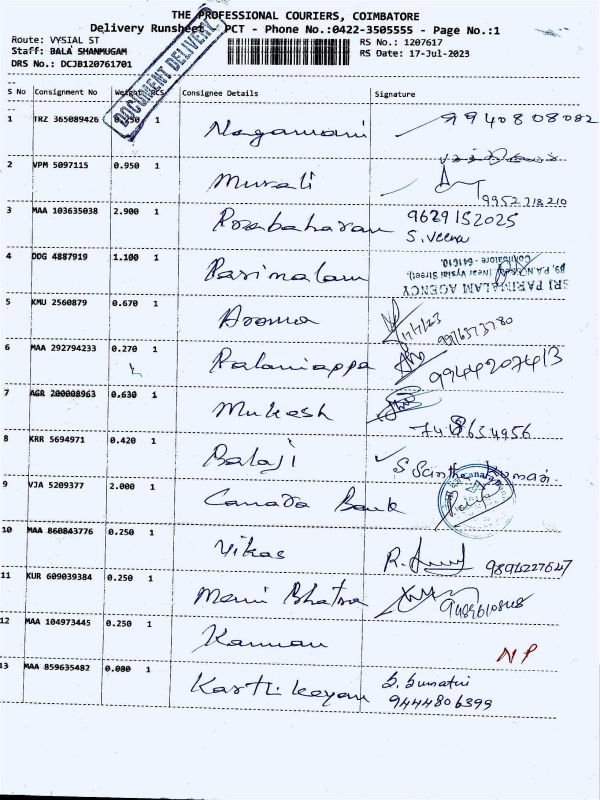 THE PROFESSIONAL COURIERS, COIMBATORE
Delivery Runsheet PCT - Phone No.:0422-3505555 - Page No.:1
Route: VYSIAL ST RS No.: 1207617
Staff: BALA SHANMUGAM RS Date: 17-Jul-2023
DRS No.: DCJB120761701
DOCUMENT DELIVERY
S No Consignment No Weight PCS Consignee Details Signature
1 TRZ 365089426 0.250 1 Nagamani 9940808082
2 VPM 5097115 0.950 1 Murali 9952218210
3 MAA 103635038 2.900 1 9629152025
S. Veena
4 DDG 4887919 1.100 1 Parimalam
SRI PARIMALAM AGENCY
(Near Vysial Street),
Coimbatore - 641610.
5 KMU 2560879 0.670 1 Aroma 17/7/23
6 MAA 292794233 0.270 1 Palaniappa 9944207413
7 AGR 200008963 0.630 1 Mukesh 7418654956
8 KRR 5694971 0.420 1 Balaji
9 VJA 5209377 2.000 1 Canada Bank
10 MAA 860843776 0.250 1 Vikas 9894227647
11 KUR 609039384 0.250 1
12 MAA 104973445 0.250 1 Kannan NP
13 MAA 859635482 0.080 1 Karthikeyan
9444806399